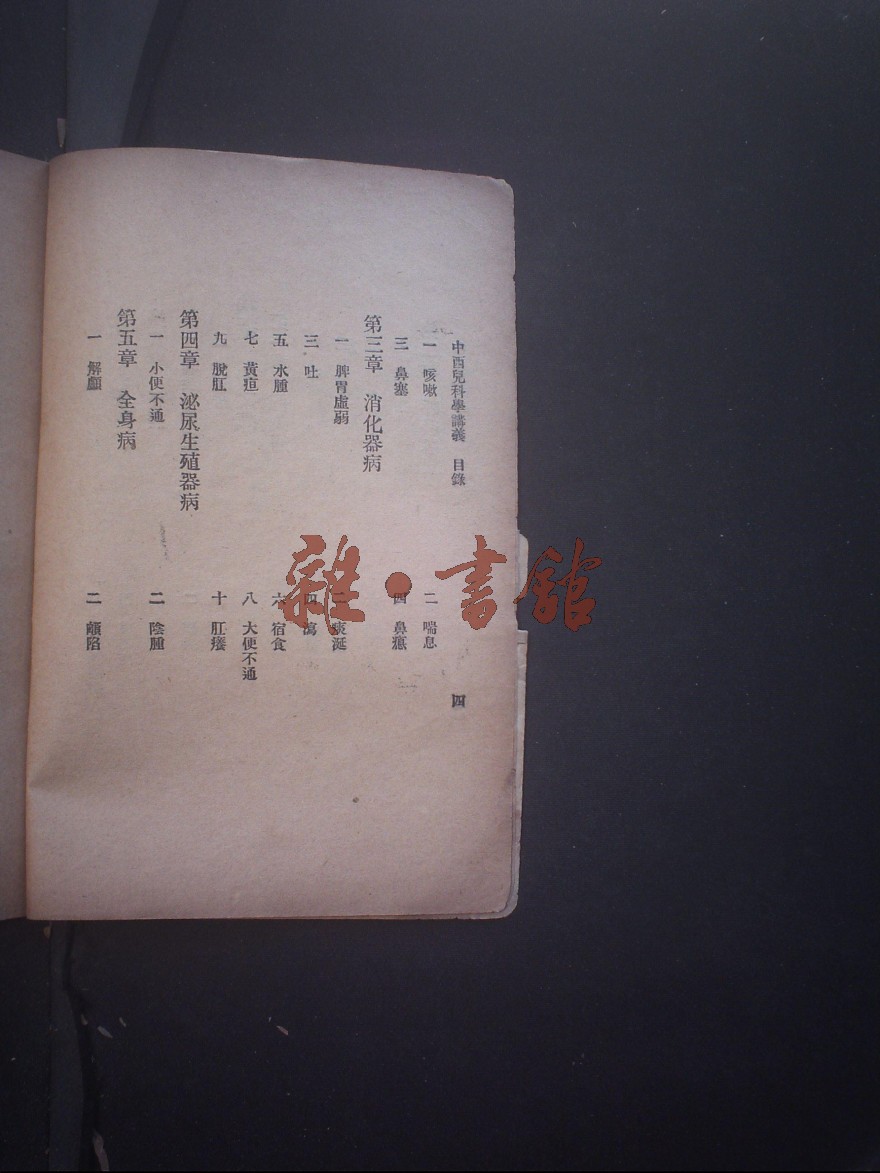 中西兒科學講義 目錄 四
一 咳嗽 二 喘息
三 鼻塞 四 鼻瘜
第三章 消化器病
一 脾胃虛弱 二 痰涎
三 吐 四 瀉
五 水腫 六 宿食
七 黃疸 八 大便不通
九 脫肛 十 肛癢
第四章 泌尿生殖器病
一 小便不通 二 陰腫
第五章 全身病
一 解顱 二 顱陷
雜·書館